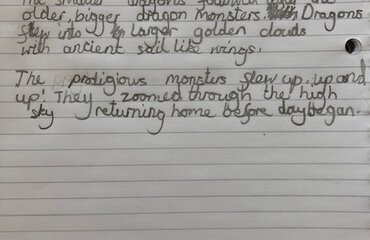 The smaller dragons followed
older, bigger dragon monsters. Dragons
flew into larger golden clouds
with ancient sail like wings.
The prodigious monsters flew up, up and
up! They zoomed through the high
sky returning home before day began.